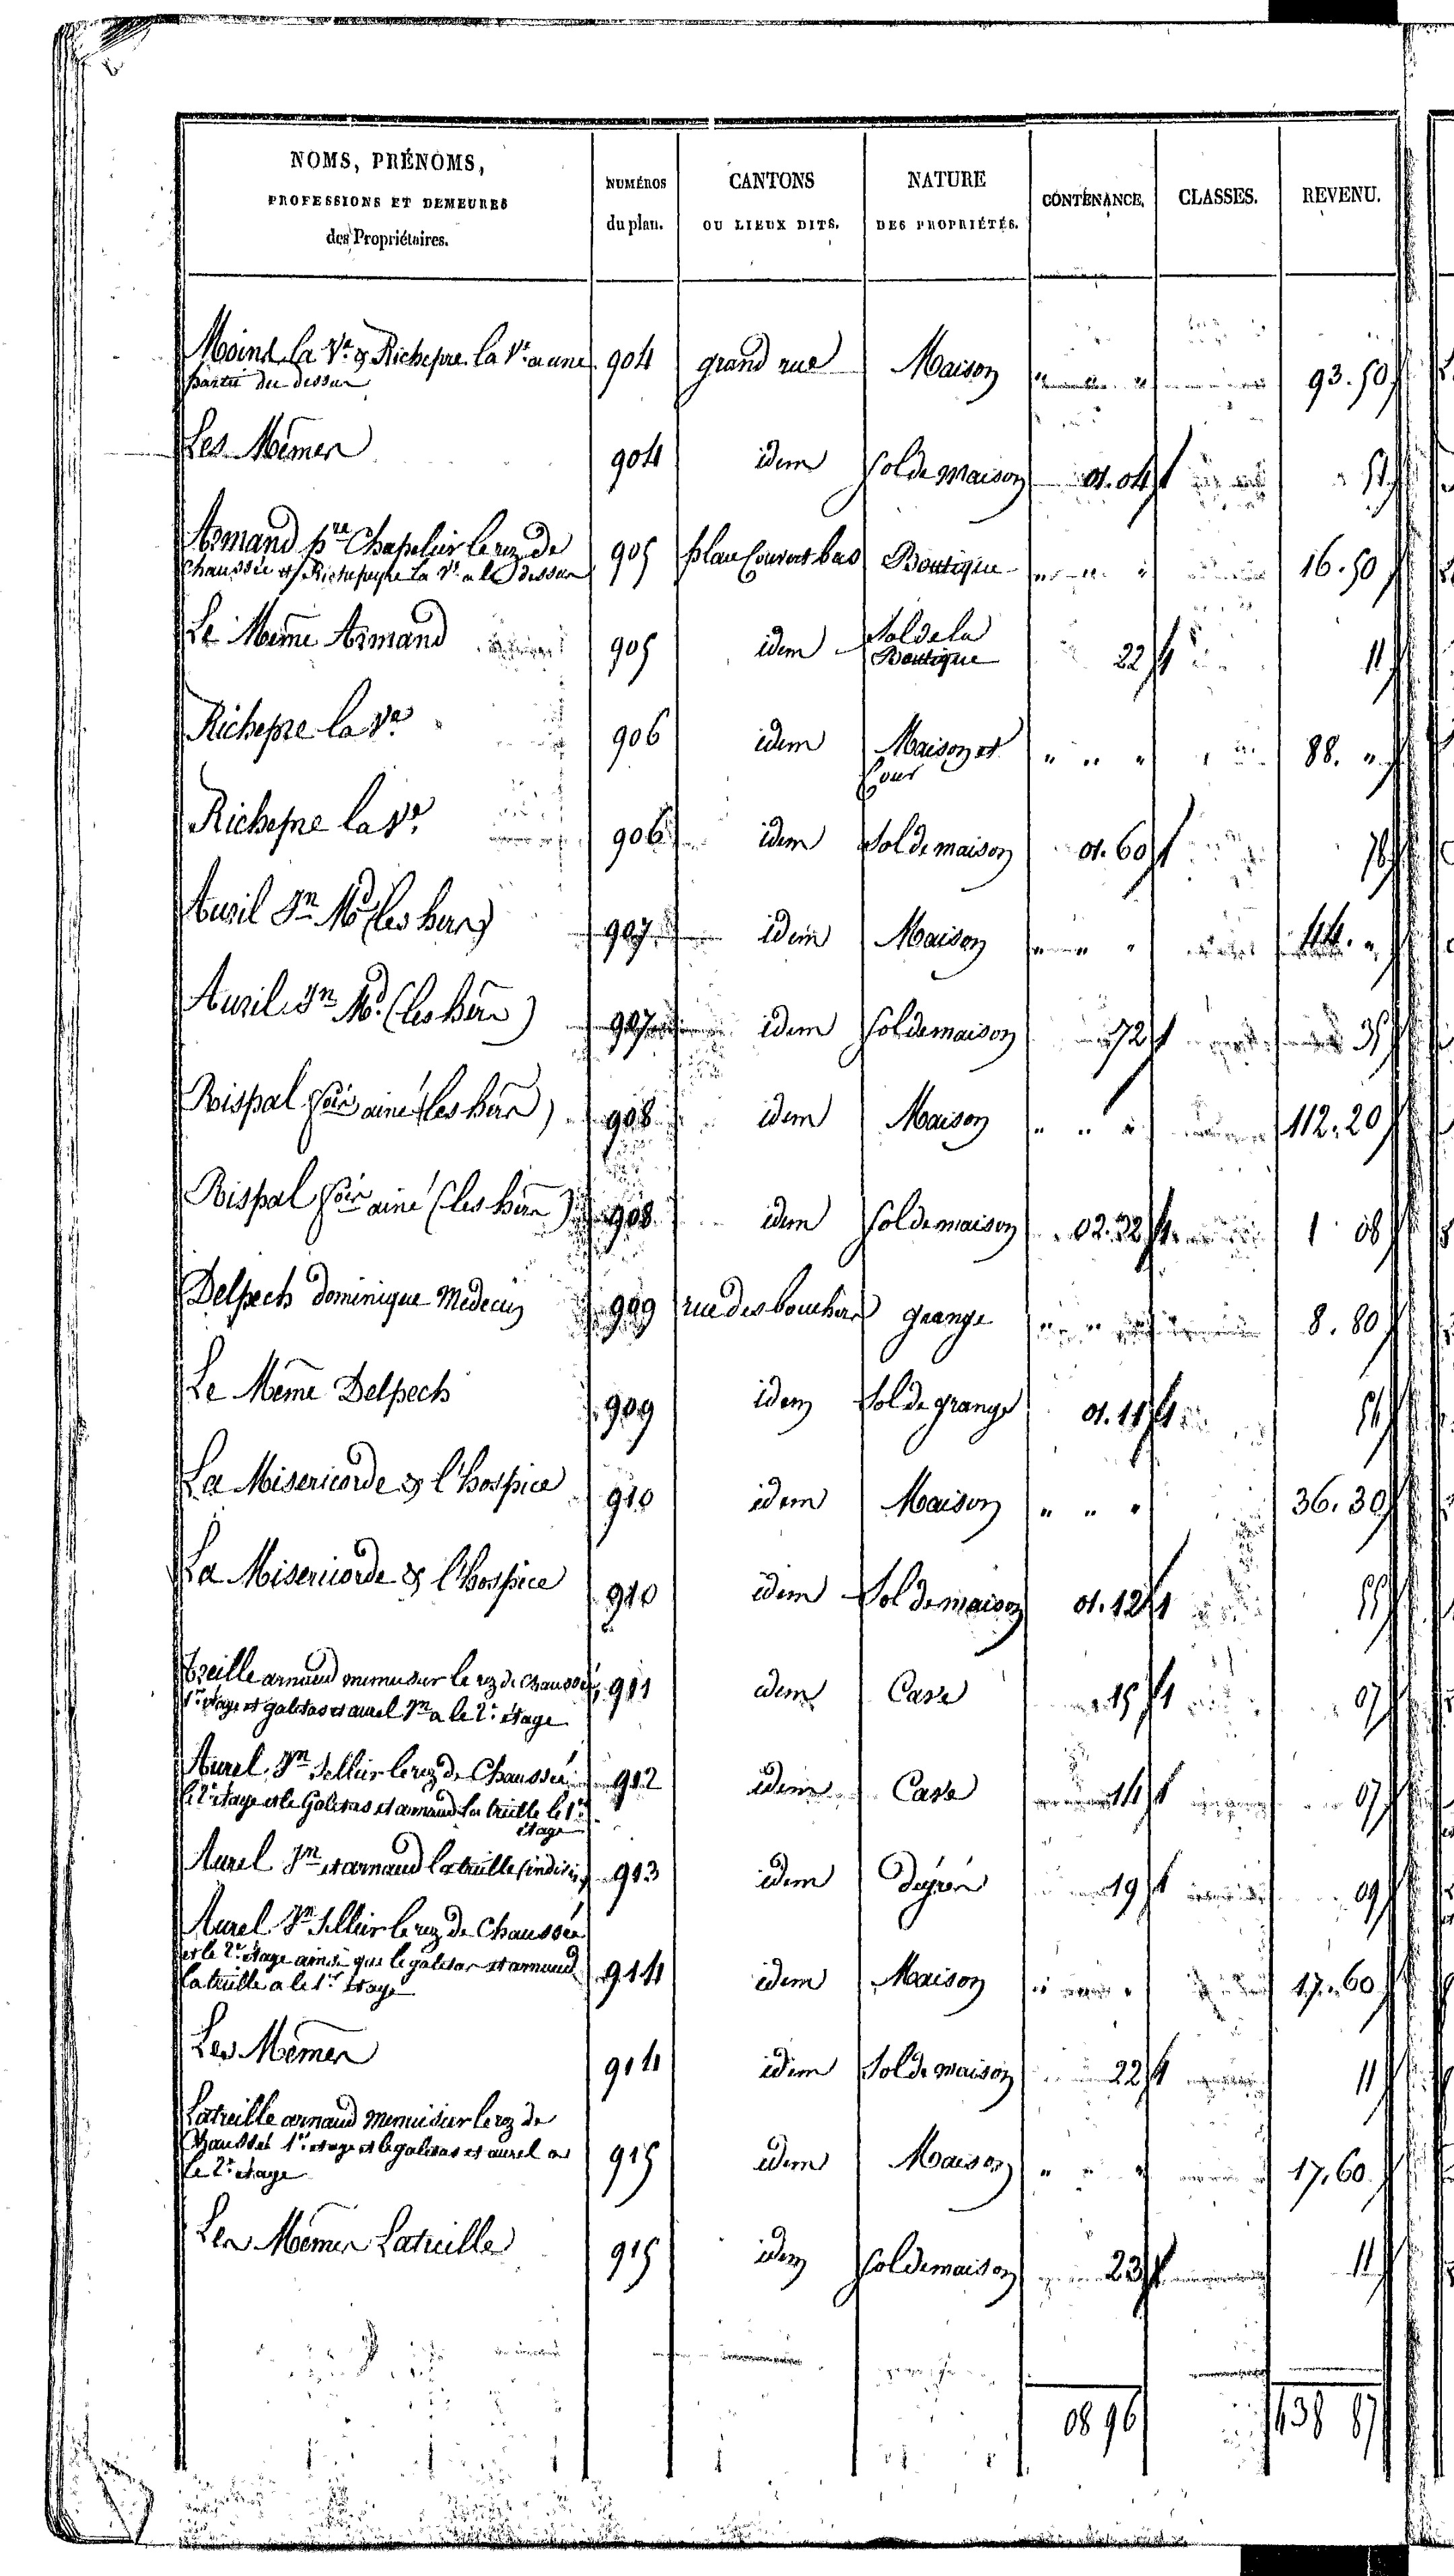 NOMS, PRÉNOMS, PROFESSIONS ET DEMEURES des Propriétaires. NUMÉROS du plan. CANTONS OU LIEUX DITS. NATURE DES PROPRIÉTÉS. CONTENANCE. CLASSES. REVENU.
Moins la Ve & Richepre la Ve a une 904 grand rue Maison " " " 93.50
partie du dessus
Les Mêmes 904 idem Sol de Maison 01.04 1 51
Armand pre Chapelier le rez de 905 place Couvert bas Boutique " " " 16.50
chaussée et Richepeyre la Ve a le dessus
Le Même Armand 905 idem Sol de la 22 1 11
Boutique
Richepre la Ve 906 idem Maison et " " " 88. "
Cour
Richepre la Ve 906 idem Sol de maison 01.60 1 78
Auril Jn Md (les hers) 907 idem Maison " " " 44. "
Auril Jn Md. (les hers) 907 idem Sol de maison 72 1 35
Rispal ainé (les hers) 908 idem Maison " " " 112.20
Rispal ainé (les hers) 908 idem Sol de maison 02.22 1 1 08
Delpech dominique Medecin 909 rue des bouchers grange " " " 8.80
Le Même Delpech 909 idem Sol de grange 01.11 1 54
La Misericorde & l'hospice 910 idem Maison " " " 36.30
La Misericorde & l'hospice 910 idem Sol de maison 01.12 1 55
treille arnaud menusier le rez de chaussée, 911 idem Cave 15 1 07
1er étage et galetas et aurel Jn a le 2e étage
Aurel Jn Sellier le rez de Chaussée 912 idem Cave 14 1 07
le 2e étage et le Galetas et arnaud la treille le 1er
étage
Aurel Jn et arnaud latreille (indivis) 913 idem dégrés 19 1 09
Aurel Jn Sellier le rez de Chaussée
et le 2e étage ainsi que le galetas et arnaud 914 idem Maison " " " 17.60
latreille a le 1er étage
Les Mêmes 914 idem Sol de maison 22 1 11
Latreille arnaud menuisier le rez de
Chaussée 1er étage et le galetas et aurel a 915 idem Maison " " " 17.60
le 2e étage
Les Mêmes Latreille 915 idem Sol de maison 23 1 11
08 96 438 87